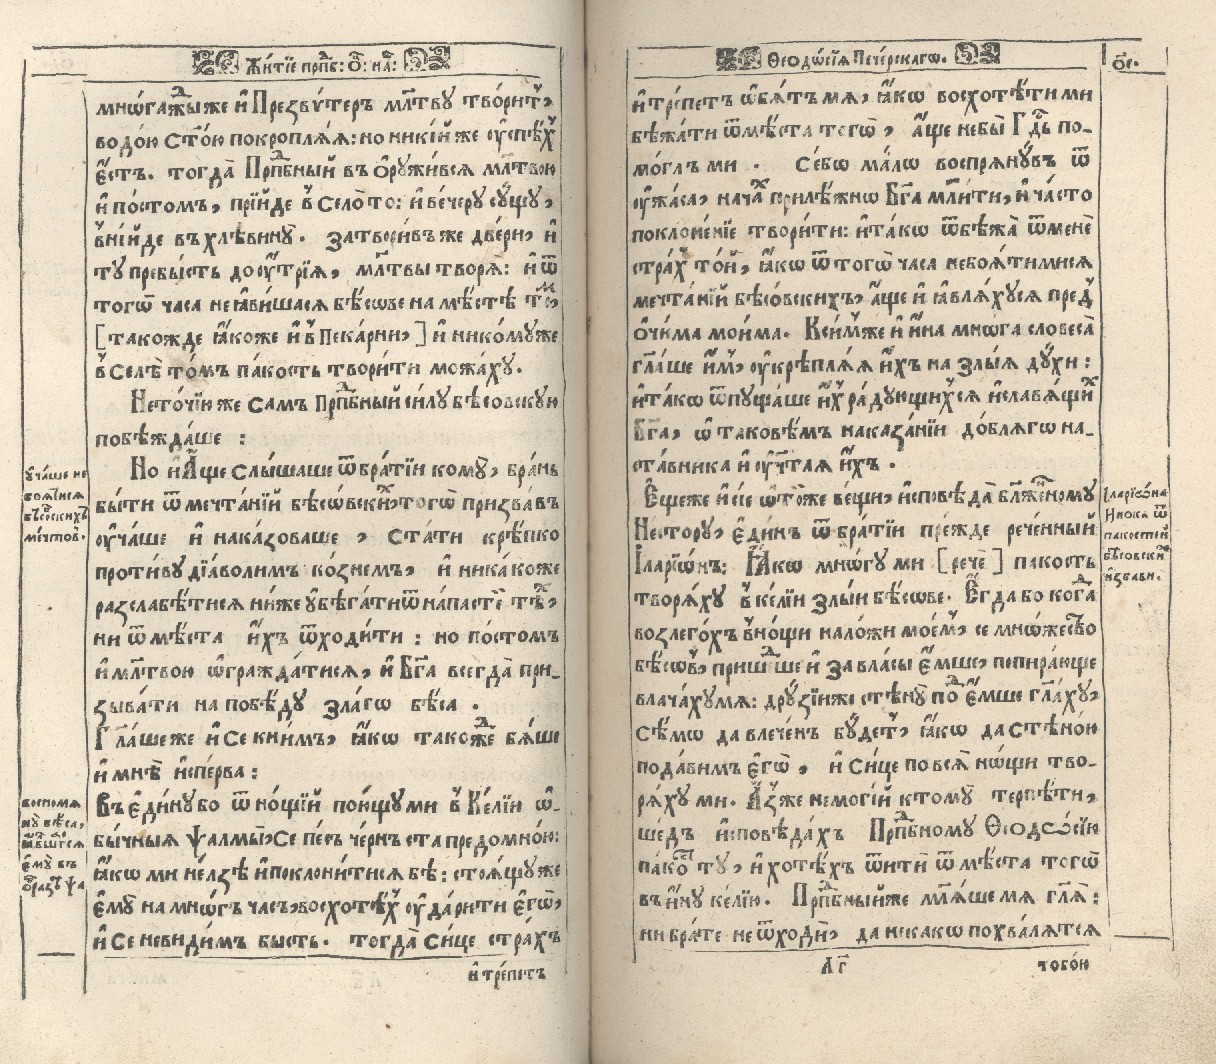 Жи́тїе прпⷣб: ѻ҃: на́:
мнѡгаⷤды же и҆ Презвѵ́теръ мл҃тву твори́тъ,
водо́ю ст҃о́ю покропла́ѧ: но никі́й же ᲂу҆спѣ́хъ
є҆́сть. тогда̀ Прпⷣбный въѻрꙋжи́всѧ мл҃твою
и҆ по́стомъ, прїи́де в̾ село̀ то: и҆ ве́черꙋ сꙋ́щꙋ,
вни́йде въ хлѣ́винꙋ. затвори́въ же две́ри, и҆
тꙋ̀ пребы́сть до ᲂу҆́трїѧ, мл҃твы творѧ̀: и҆ ѿ
тогѡ̀ часа не ꙗ҆ви́шасѧ бѣ́сѡве на мѣ́стѣ то́мъ,
[такожде ꙗ҆́коже и҆ в̾ Пека́рни,] и҆ нико́мꙋже
в̾ селѣ̀ то́мъ па́кость твори́ти можа́хꙋ.
Не то́чїю же са́мъ Прпⷣбный си́лꙋ бѣсовскꙋю
побѣжда́ше :
Но и҆ а҆́ще слы́шаше ѿ бра́тїи комꙋ̀, бра́нь
бы́ти ѿ мечта́нїй бѣсѡвскиⷯ, того̀ призва́въ
ᲂу҆ча́ше и҆ нака́зоваше, ста́ти крѣ́пко
проти́вꙋ дїа́волимъ ко́знемъ, и҆ ника́коже
разслабѣ́тисѧ нижѐ ᲂу҆бѣга́ти ѿ напа́сте тѣ́хъ,
ни ѿ мѣ́ста и҆́хъ ѿходи́ти : но по́стомъ
и҆ мл҃твою ѡ҆гражда́тисѧ, и҆ Бг҃а всегда̀ при-
зыва́ти на побѣ́дꙋ зла́гѡ бѣ́са .
Гл҃аше же и҆ се к ни́мъ, ꙗ҆́кѡ тако́же бѧ́ше
и҆ мнѣ̀ и҆спе́рва :
Въ є҆ди́нꙋ бо ѿ но́щїй пою́щꙋ ми в̾ Ке́лїи ѡ҆-
бы́чныѧ ѱалмы̀, се пе́съ че́рнъ ста предо мно́ю:
ꙗ҆́кѡ ми нелзѣ̀ и҆ поклони́тисѧ бѣ̀: стоѧ́щꙋ же
є҆мꙋ̀ на мно́гъ ча́съ, восхотѣ́хъ ᲂу҆да́рити є҆го̀,
и҆ се неви́димъ бысть. тогда̀ си́це стра́хъ
и҆ тре́петъ
ᲂу҆ча́ше не
боѧ́тисѧ
бѣсо́вскихъ
мечтовъ.
воспомѧ-
нꙋ̀ бѣ́са,
ꙗ҆́вшгосѧ
є҆мꙋ̀ въ
ѻ҆́бразѣ ѱа
Ѳеодѡ́сїѧ Пече́рскагѡ.
ѻ҃е.
и҆ тре́петъ ѡ҆б̾ѧ́тъ мѧ, ꙗ҆́кѡ восхотѣ́ти ми
бѣжа́ти ѿ мѣ́ста тогѡ̀, а҆́ще не бы̀ Гдⷭ҇ь по-
мо́глъ ми . Се́бѡ ма́лѡ воспрѧнꙋ́въ ѿ
ᲂу҆́жаса, нача́хъ прилѣ́жнѡ Бг҃а мл҃и́ти, и҆ ча́сто
поклоне́нїе твори́ти: и҆ та́кѡ ѿбѣжа̀ ѿ менѐ
стра́хъ то́й, ꙗ҆́кѡ ѿ тогѡ̀ часа не боѧ́тимисѧ
мечта́нїй бѣсо́вскихъ, а҆́ще и҆ ꙗ҆влѧ́хꙋсѧ пре́дъ
ѻ҆чи́ма мои́ма. К си́мъ же и҆ и҆на мнѡ́га словеса̀
гл҃аше и҆́мъ, ᲂу҆крѣплѧ́ѧ и҆́хъ на злы́ѧ дꙋ́хи :
и҆ та́кѡ ѿпꙋща́ше и҆́хъ ра́дꙋющихсѧ и҆ сла́вѧщиⷯ
Бг҃а, ѡ҆ таковѣ́мъ наказа́нїи до́блѧгѡ на-
ста́вника и҆ ᲂу҆чт҃лѧ и҆́хъ .
Є҆ще же и҆ сїе ѡ҆ то́йже ве́щи, и҆сповѣ́да бл҃же́нномꙋ
Не́сторꙋ, є҆ди́нъ ѿ бра́тїи пре́жде рече́нный
Іларїѡ́нъ: Ꙗ҆́кѡ мнѡ́гꙋ ми [речѐ] па́кость
творѧ́хꙋ в̾ ке́лїи злы́и бѣ́сѡве. Є҆гда́ бо когда̀
возлего́хъ в̾ но́щи на ло́жи мое́мъ, се мнѡ́жество
бѣсѡ́въ, прише́дше и҆ за вла́сы є҆́мше, попира́юще
влача́хꙋ мѧ: дрꙋзі́и же стѣ́нꙋ по́д̾ є҆мше гл҃ахꙋ,
сѣ́мѡ да влече́нъ бꙋ́детъ, ꙗ҆́кѡ да стѣно́ю
пода́вимъ є҆гѡ̀, и҆ си́це по всѧ̀ но́щи тво-
рѧ́хꙋ ми. А҆́зъ же не могі́й ктомꙋ̀ терпѣ́ти,
ше́дъ и҆сповѣ́дахъ Прпⷣбномꙋ Ѳеодѡ́сїю
па́кость тꙋ̀, и҆ хотѣ́хъ ѿитѝ ѿ мѣ́ста тогѡ̀
въ и҆́нꙋ ке́лїю. Прпⷣбный же млѧ́ше мѧ гл҃ѧ̀ :
ни бра́те не ѿходѝ, да не ка́кѡ похва́лѧтсѧ
Іларїѡ́на
И҆нока ѿ
па́костей
бѣсовскиⷯ
и҆зба́ви.
тобо́ю